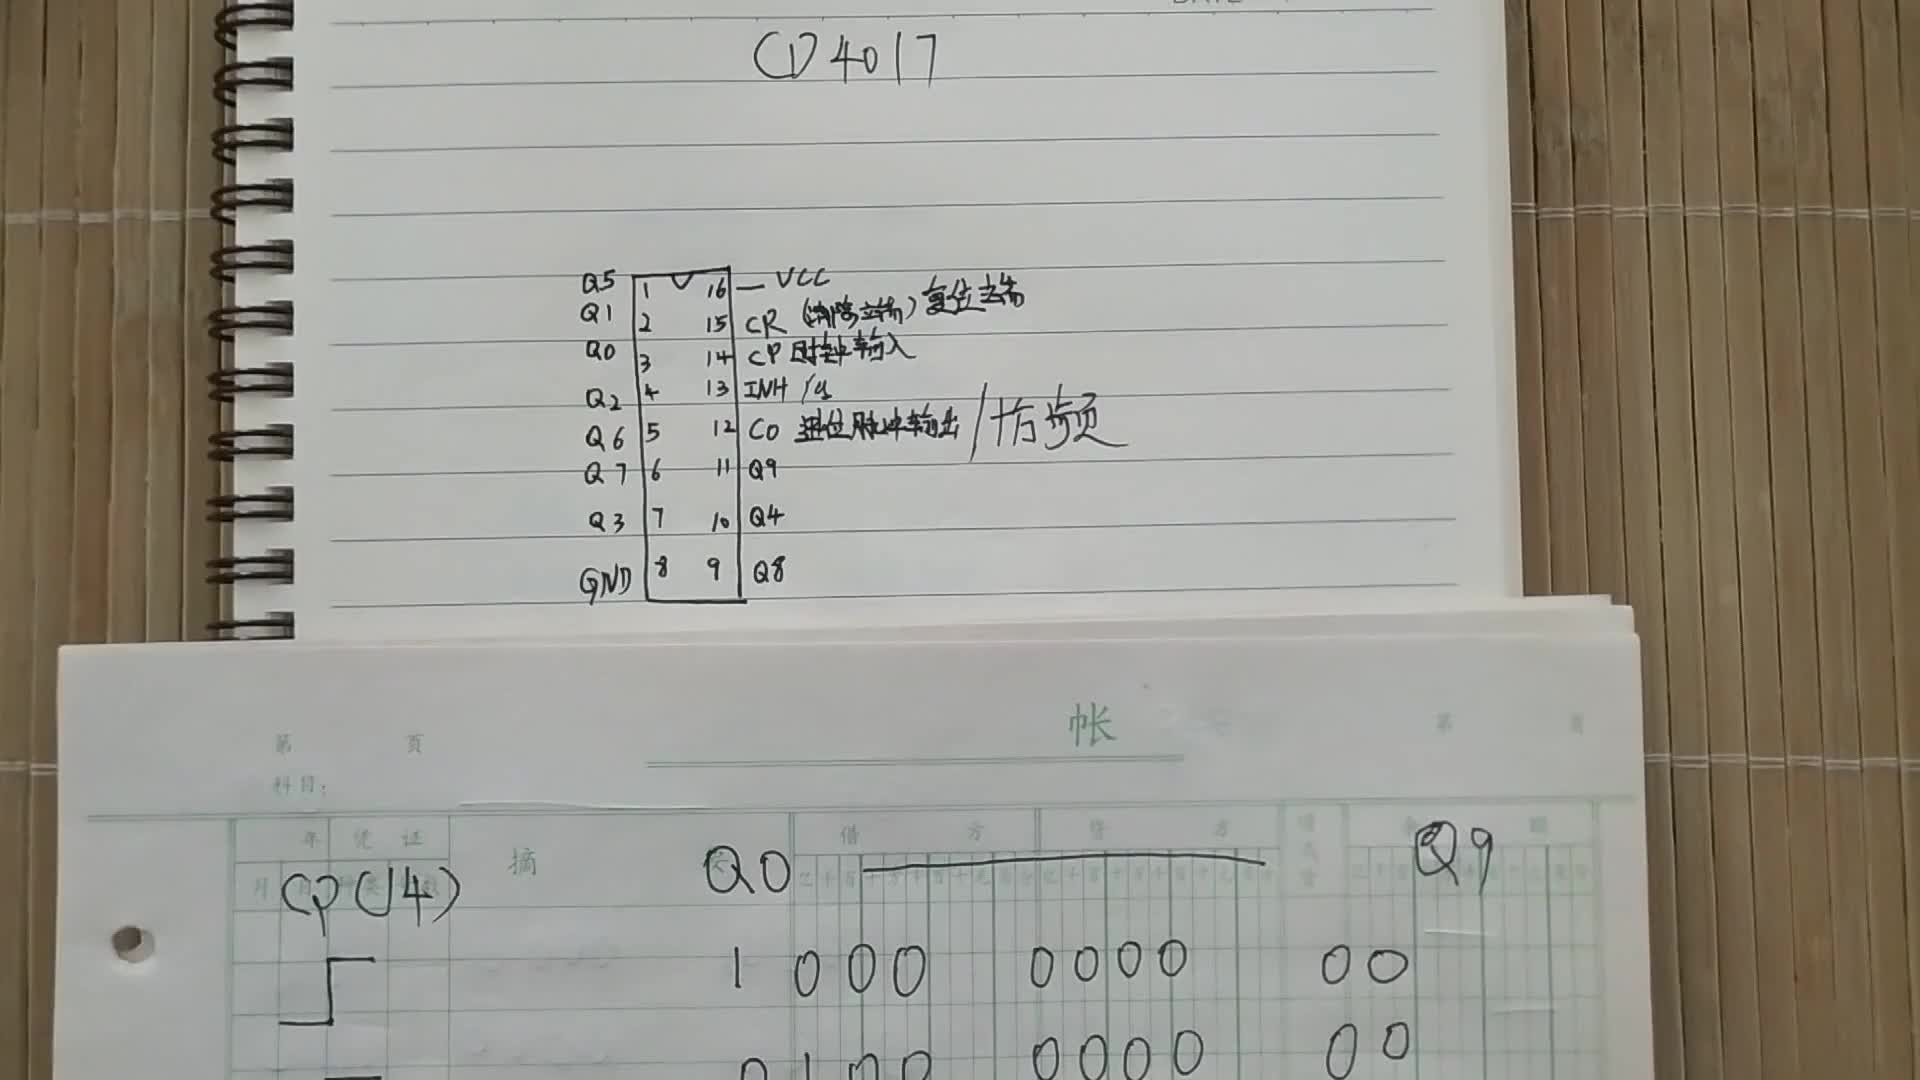 CD4017
Q5 1 16 — VCC
Q1 2 15 CR (消除端) 复位端
Q0 3 14 CP 时钟输入
Q2 4 13 INH
Q6 5 12 CO 进位脉冲输出 / 十分频
Q7 6 11 Q9
Q3 7 10 Q4
GND 8 9 Q8
帐
第 页 第 页
科目:
年 凭证 摘 借 方 贷 方 余 额
月 日
CP(14) Q0 Q9
1000 0000 00
0100 0000 00